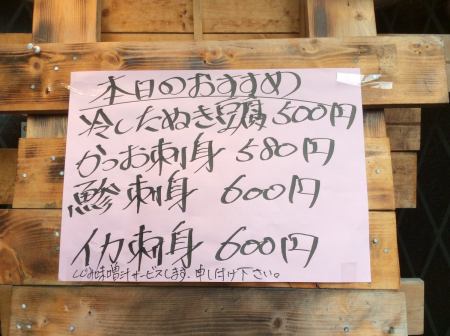 本日のおすすめ
冷したぬき豆腐 500円
かつお刺身 580円
鯵刺身 600円
イカ刺身 600円
しじみ味噌汁サービスします、申し付け下さい。